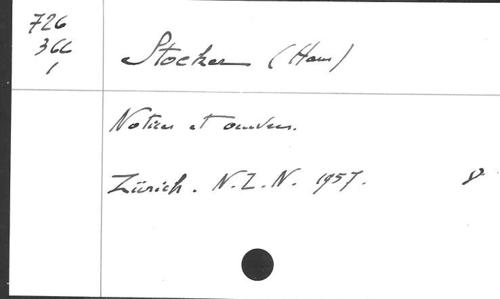 726
366
1
Stocker (Hans)
Notices et
Zürich. N.Z.N. 1957. 8